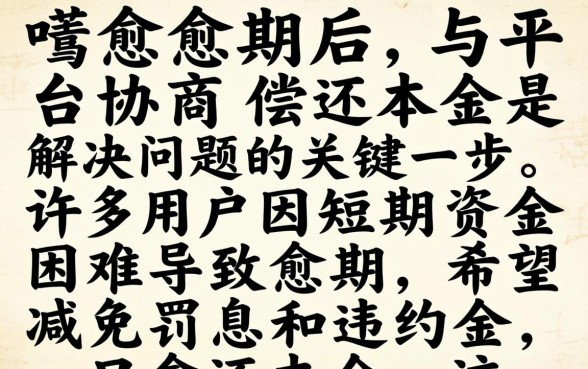 愈愈期后，与平
台协商 偿还本金是
解决问题的关键一步。
许多用户因短期资金
困难导致愈期，希望
减免罚息和违约金，